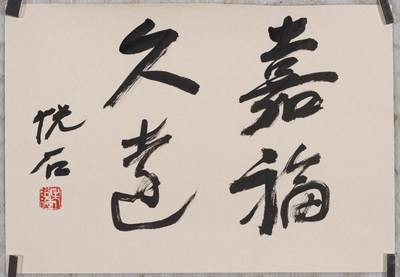 嘉福
久遠
悦石